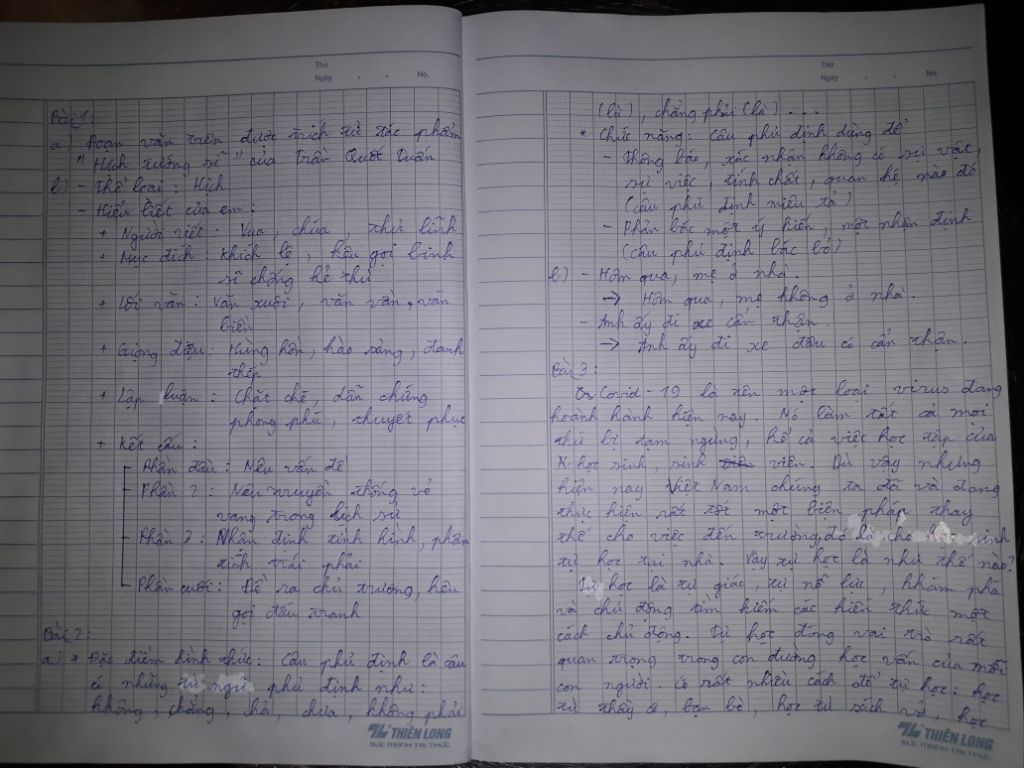 Thứ
Ngày . . No.
Bài 1:
a) Đoạn văn trên được trích từ tác phẩm
"Hịch tướng sĩ" của Trần Quốc Tuấn
b) - Thể loại: Hịch
- Hiểu biết của em:
+ Người viết: Vua, chúa, thủ lĩnh
+ Mục đích: Khích lệ, kêu gọi binh
sĩ chống kẻ thù
+ Lời văn: Văn xuôi, văn vần, văn
biền
+ Giọng điệu: Hùng hồn, hào sảng, đanh
thép
+ Lập luận: Chặt chẽ, dẫn chứng
phong phú, thuyết phục
+ Kết cấu:
Phần đầu: Nêu vấn đề
- Phần 2: Nêu truyền thống vẻ
vang trong lịch sử
- Phần 3: Nhận định tình hình, phân
tích trái phải
- Phần cuối: Đề ra chủ trương, kêu
gọi đấu tranh
Bài 2:
a) * Đặc điểm hình thức: Câu phủ định là câu
có những từ ngữ phủ định như:
không, chẳng, chả, chưa, không phải
THIÊN LONG
SỨC MẠNH TRI THỨC
Thứ
Ngày . . No.
(là), chẳng phải (là)...
* Chức năng: Câu phủ định dùng để
- Thông báo, xác nhận không có sự vật,
sự việc, tính chất, quan hệ nào đó
(câu phủ định miêu tả)
- Phản bác một ý kiến, một nhận định
(câu phủ định bác bỏ)
b) - Hôm qua, mẹ ở nhà.
→ Hôm qua, mẹ không ở nhà.
- Anh ấy đi xe cẩn thận.
→ Anh ấy đi xe đâu có cẩn thận.
Bài 3:
Covid-19 là tên một loại virus đang
hoành hành hiện nay. Nó làm tất cả mọi
thứ bị tạm ngừng, kể cả việc học tập của
học sinh, sinh viên. Dù vậy nhưng
hiện nay Việt Nam chúng ta đã và đang
thực hiện rất tốt một biện pháp thay
thế cho việc đến trường, đó là cho sinh
tự học tại nhà. Vậy tự học là như thế nào?
Tự học là tự giác, tự nỗ lực, khám phá
và chủ động tìm kiếm các kiến thức một
cách chủ động. Tự học đóng vai trò rất
quan trọng trong con đường học vấn của mỗi
con người. Có rất nhiều cách để tự học: học
từ thầy cô, bạn bè, học từ sách vở, học
THIÊN LONG
SỨC MẠNH TRI THỨC